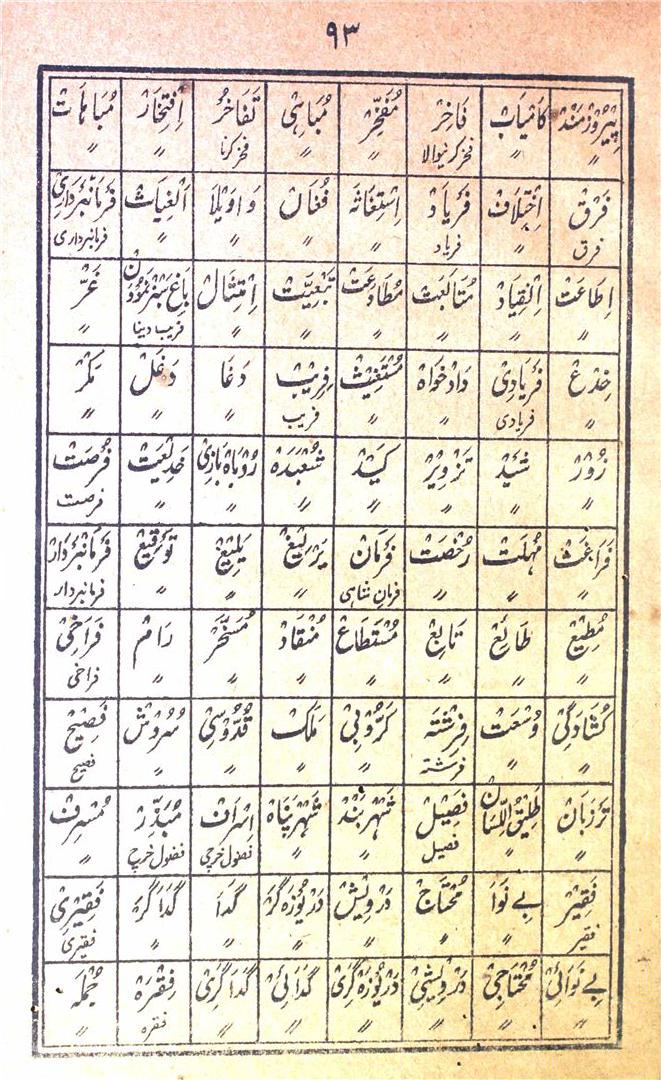 ۹۳
پِیرُوزْمَنْد کَامْیَابْ فَاخِرْ مُفَخِّرْ مُبَاہِیْ تَفَاخُرْ اِفْتِخَارْ مُبَاہَاتْ
〃 〃 فخر کرنیوالا 〃 〃 فخر کرنا 〃 〃
فَرْق اِخْتِلَافْ فَرْیَادْ اِسْتِغَاثَہْ فُغَانْ وَاوَیْلَا اَلْغِیَاثْ فَرْمَانْبَرْدَارِیْ
فرق 〃 فریاد 〃 〃 〃 〃 فرمانبرداری
اِطَاعَتْ اِنْقِیَادْ مُتَابَعَتْ مُطَاوَعَتْ تَبْعِیَّتْ اِمْتِثَالْ بَاغِ سَبْز نَمُوْدَنْ غَرّ
〃 〃 〃 〃 〃 〃 فریب دینا 〃
خِدَعْ فَرْیَادِیْ دَادْخَواہْ مُسْتَغِیْثْ فِرِیْبْ دَغَا دَغَلْ مَکْرْ
〃 فریادی 〃 〃 فریب 〃 〃 〃
زُوْرْ شَیْدْ تَزْوِیْرْ کَیْدْ شُعْبَدَہْ رُوْبَاہْ بَازِیْ خَدِیْعَتْ فُرْصَتْ
〃 〃 〃 〃 〃 〃 〃 فرصت
فَرَاغَتْ مُہْلَتْ رُخْصَتْ فَرْمَانْ یَرْلِیْغْ یَلِیْغْ تَوْقِیْعْ فَرْمَانْبَرْدَارْ
〃 〃 〃 فرمان شاہی 〃 〃 〃 فرمانبردار
مُطِیْعْ طَائِعْ تَابِعْ مُسْتَطَاعْ مُنْقَادْ مُسَخَّرْ رَامْ فَرَاخِیْ
〃 〃 〃 〃 〃 〃 〃 فراخی
کُشَادَگِیْ وُسْعَتْ فِرِشْتَہْ کَرُّوْبِیْ مَلَکْ قُدُّوْسِیْ سُرُوْشْ فَصِیْحْ
〃 〃 فرشتہ 〃 〃 〃 〃 فصیح
تَرْزَبَانْ طَلِیْقُ اللِّسَانْ فَصِیْلْ شَہْرْبَنْدْ شَہْرْپَنَاہْ اِسْرَافْ مُبَذِّرْ مُسْرِفْ
〃 〃 فصیل 〃 〃 فضول خرچی فضول خرچ 〃
فَقِیْرْ بے نَوَا مُحْتَاجْ دَرْوِیْشْ دَرْیُوْزَہْ گَرْ گَدَا گَدَاگَرْ فَقِیْرِیْ
فقیر 〃 〃 〃 〃 〃 〃 فقیری
بے نَوَائِیْ مُحْتَاجِیْ دَرْوِیْشِیْ دَرْیُوْزَہْ گَرِیْ گَدَائِیْ گَدَاگَرِیْ فِقْرَہْ جُمْلَہْ
〃 〃 〃 〃 〃 〃 فقرہ 〃